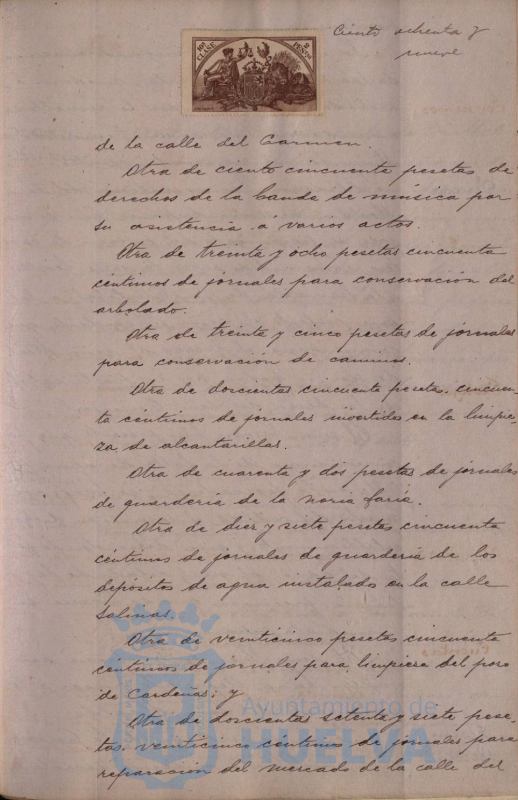 Ciento ochenta y
nueve
10ª CLASE
PESETAS
de la calle del Carmen.
Otra de ciento cincuenta pesetas de
derechos de la banda de música por
su asistencia á varios actos.
Otra de treinta y ocho pesetas cincuenta
céntimos de jornales para conservación del
arbolado.
Otra de treinta y cinco pesetas de jornales
para conservación de caminos.
Otra de doscientas cincuenta pesetas cincuen-
ta céntimos de jornales invertidos en la limpie-
za de alcantarillas.
Otra de cuarenta y dos pesetas de jornales
de guardería de la noria
Otra de diez y siete pesetas cincuenta
céntimos de jornales de guardería de los
depósitos de agua instalado en la calle
Salinas.
Otra de veinticinco pesetas cincuenta
céntimos de jornales para limpiesa del poso
de Cardeñas; y
Otra de doscientas setenta y siete pese-
tas veinticinco céntimos de jornales para
reparación del mercado de la calle del
Ayuntamiento de
HUELVA